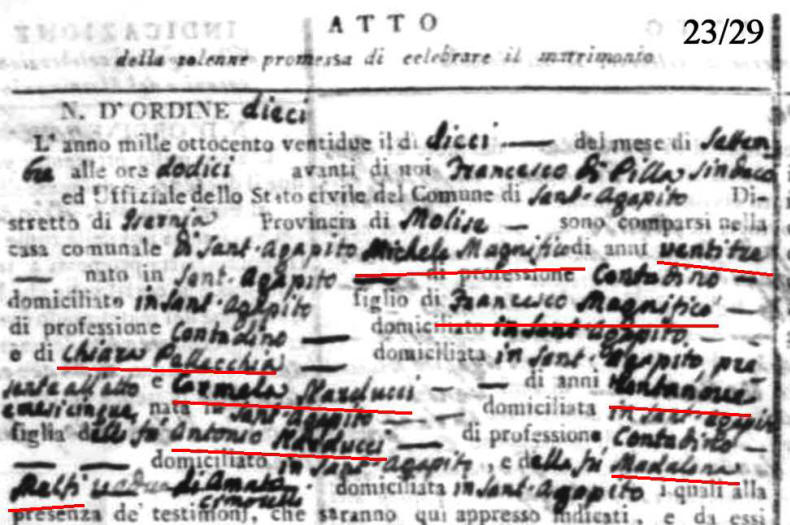 23/29
ATTO
della solenne promessa di celebrare il matrimonio
N. D'ORDINE dieci
L'anno mille ottocento ventidue il di dieci — del mese di Settem
bre alle ora dodici avanti di noi Francesco Di Pilla Sindaco
ed Uffiziale dello Stato civile del Comune di Sant-Agapito Di-
stretto di Isernia Provincia di Molise — sono comparsi nella
casa comunale di Sant-Agapito Michele Magnifico di anni ventitre
— nato in Sant-Agapito — di professione Contadino —
domiciliato in Sant-Agapito figlio di Francesco Magnifico
di professione Contadino — domiciliato in Sant-Agapito
e di Chiara — domiciliata in Sant-Agapito, pre
sente all'atto e Carmela Narducci — — di anni
nata in Sant-Agapito — — domiciliata in Sant-Agapito
figlia dello fu Antonio Narducci — di professione Contadino —
— — domiciliato in Sant-Agapito, e della fu Madalena
di Amato domiciliata in Sant-Agapito i quali alla
presenza de' testimonj, che saranno qui appresso indicati, e da essi